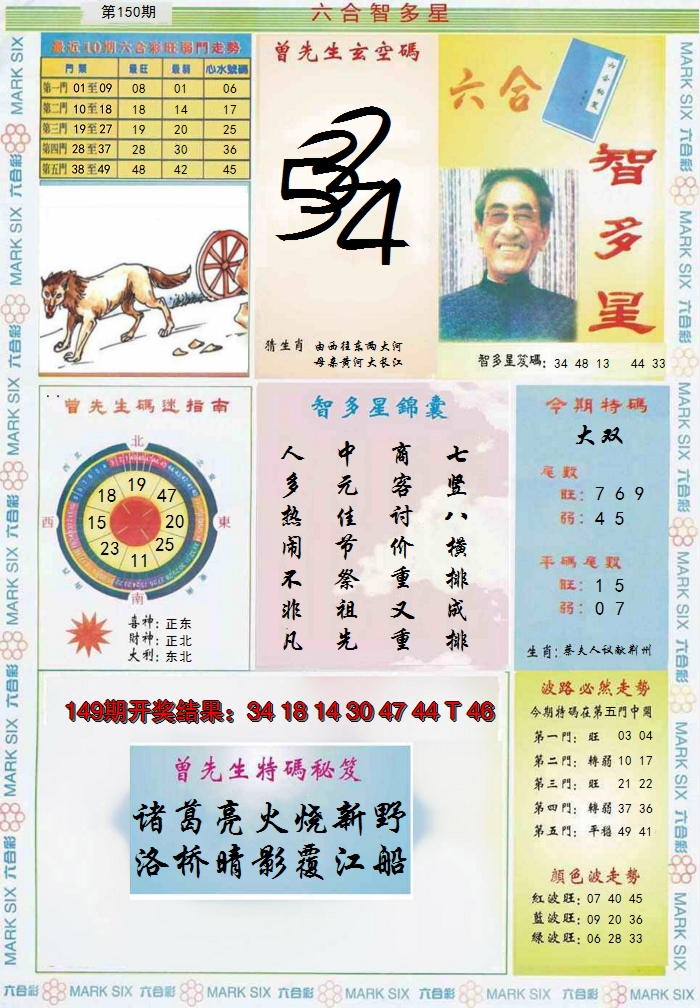 第150期
六合智多星
最近10期六合彩旺弱門走勢
門類 最旺 最弱 心水號碼
第一門 01至09 08 01 06
第二門 10至18 18 14 17
第三門 19至27 19 20 25
第四門 28至37 28 30 36
第五門 38至49 48 42 45
曾先生玄空碼
5324
猜生肖 由西往东两大河
母亲黄河大长江
六合
六合秘笈
智多星
智多星笈碼: 34 48 13 44 33
曾先生碼迷指南
北
西北
東北
西
東
南
19
47
20
25
11
23
15
18
喜神: 正东
財神: 正北
大利: 东北
智多星錦囊
七竖八横排成排
商客讨价重又重
中元佳节祭祖先
人多热闹不非凡
今期特碼
大双
尾數
旺: 7 6 9
弱: 4 5
平碼尾數
旺: 1 5
弱: 0 7
生肖: 蔡夫人议献荆州
149期开奖结果: 34 18 14 30 47 44 T 46
曾先生特碼秘笈
诸葛亮火烧新野
洛桥晴影覆江船
波路必然走勢
今期特碼在第五門中開
第一門: 旺 03 04
第二門: 轉弱 10 17
第三門: 旺 21 22
第四門: 轉弱 37 36
第五門: 平穩 49 41
顔色波走勢
紅波旺: 07 40 45
藍波旺: 09 20 36
綠波旺: 06 28 33
六合彩 MARK SIX 六合彩 MARK SIX 六合彩 MARK SIX 六合彩 MARK SIX 六合彩 MARK SIX